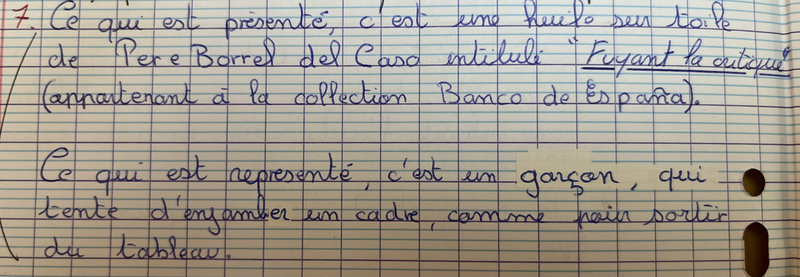 7. Ce qui est présenté, c'est une huile sur toile
de Pere Borrel del Caso intitulé "Fuyant la critique"
(appartenant à la collection Banco de España).
Ce qui est représenté, c'est un garçon, qui
tente d'enjamber un cadre, comme pour sortir
du tableau.